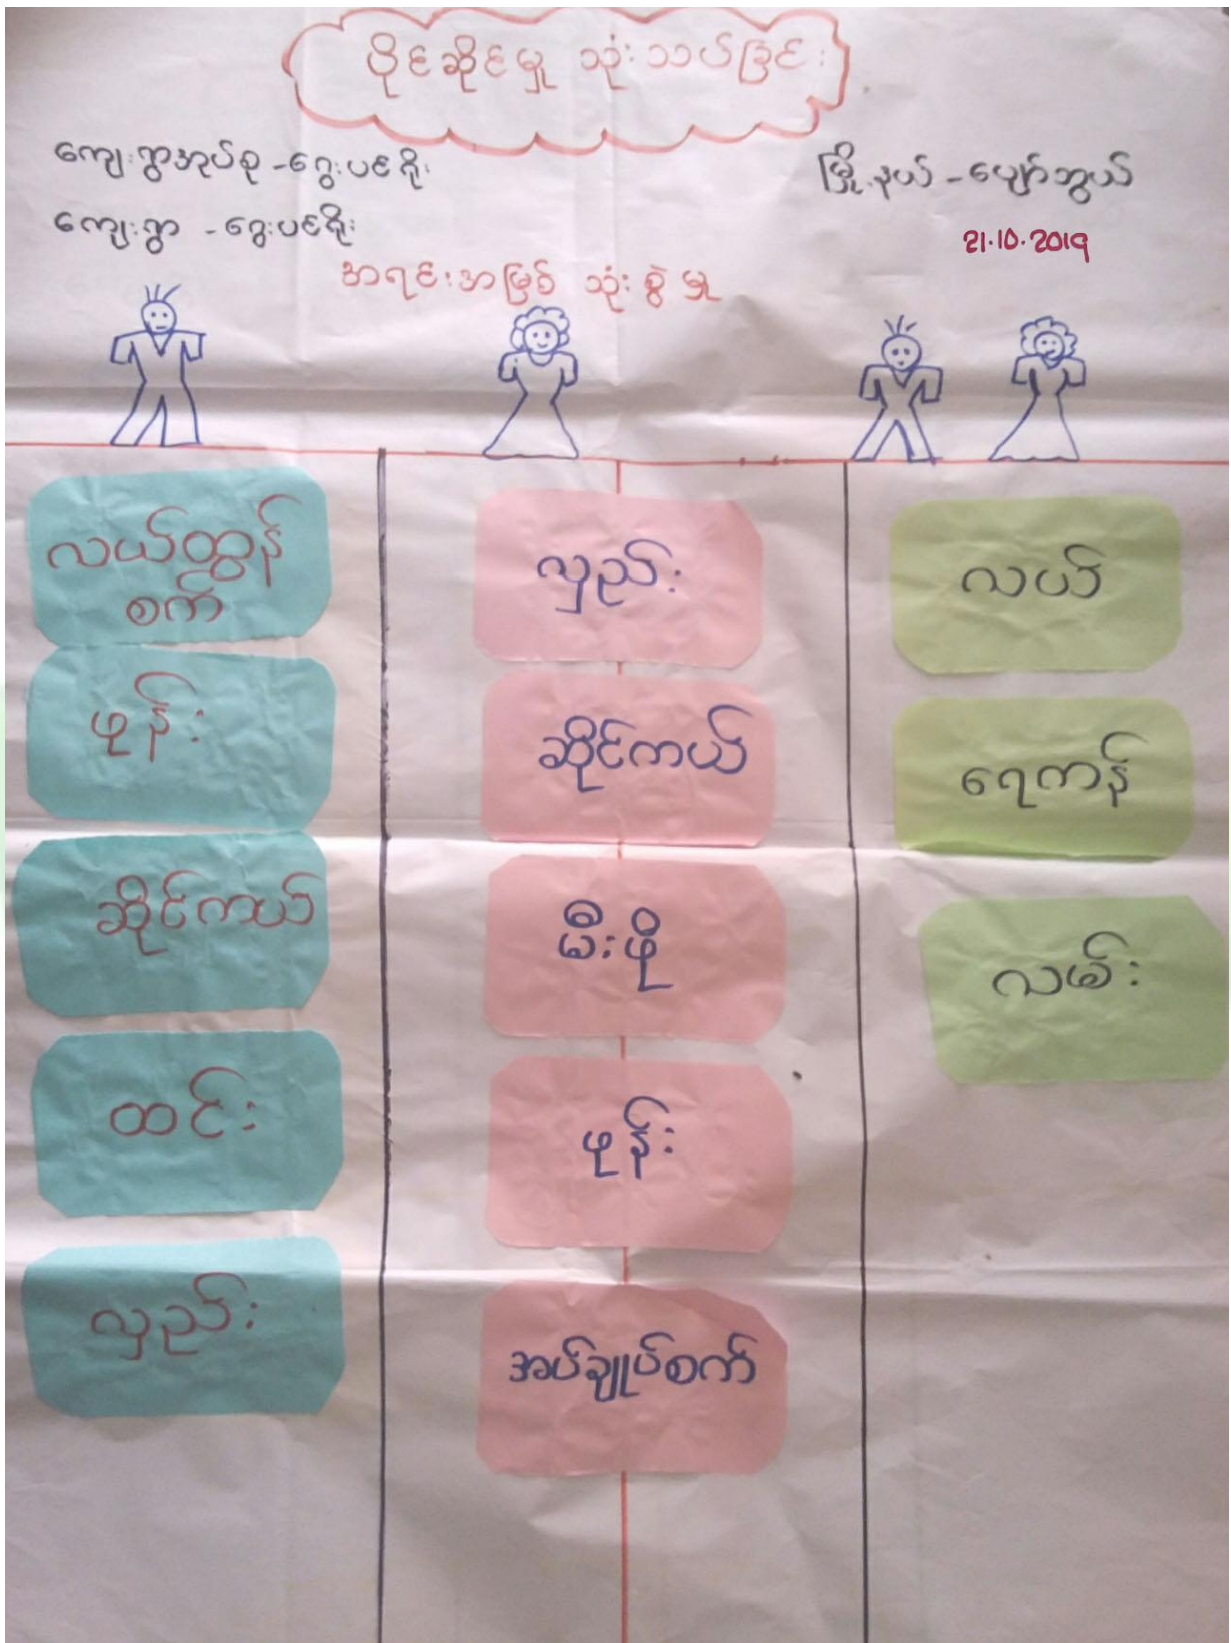 ပိုင်ဆိုင်မှု သုံးသပ်ခြင်း
ကျေးရွာအုပ်စု - ဝှေးပင်ရိုး
မြို့နယ် - ပျော်ဘွယ်
ကျေးရွာ - ဝှေးပင်ရိုး
21.10.2019
အရင်းအမြစ် သုံးစွဲမှု
လယ်ထွန်
စက်
ဖုန်း
ဆိုင်ကယ်
ထင်း
လှည်း
လှည်း
ဆိုင်ကယ်
မီးဖို
ဖုန်း
အပ်ချုပ်စက်
လယ်
ရေကန်
လမ်း